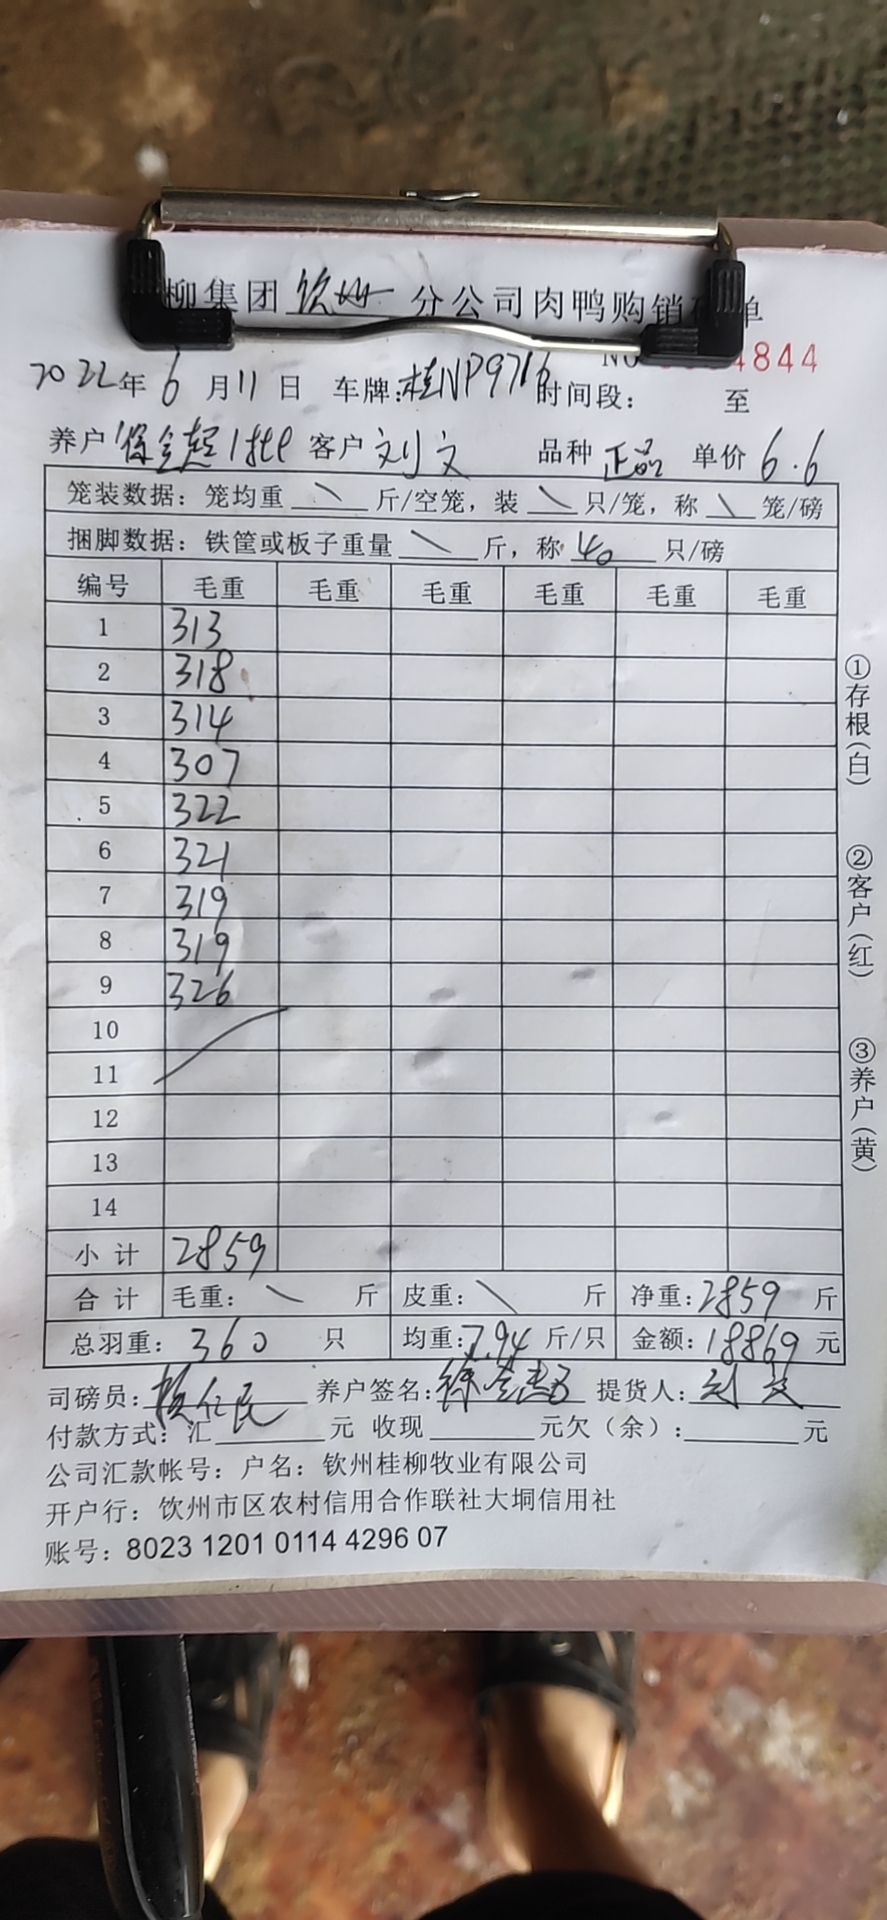 柳集团 钦州 分公司肉鸭购销 单
NO 4844
2022年6月11日 车牌:桂NP9716 时间段: 至
养户 1批 客户 刘文 品种 正品 单价 6.6
笼装数据: 笼均重 \ 斤/空笼, 装 \ 只/笼, 称 \ 笼/磅
捆脚数据: 铁筐或板子重量 \ 斤, 称 40 只/磅
编号 毛重 毛重 毛重 毛重 毛重 毛重
1 313
2 318
3 314
4 307
5 322
6 321
7 319
8 319
9 326
10
11
12
13
14
小计 2859
合计 毛重: \ 斤 皮重: \ 斤 净重:2859 斤
总羽重: 360 只 均重:7.94 斤/只 金额:18869 元
司磅员: 养户签名: 提货人:刘文
付款方式: 汇 元 收现 元欠(余): 元
公司汇款帐号: 户名: 钦州桂柳牧业有限公司
开户行: 饮州市区农村信用合作联社大垌信用社
账号: 8023 1201 0114 4296 07
①存根(白)
②客户(红)
③养户(黄)